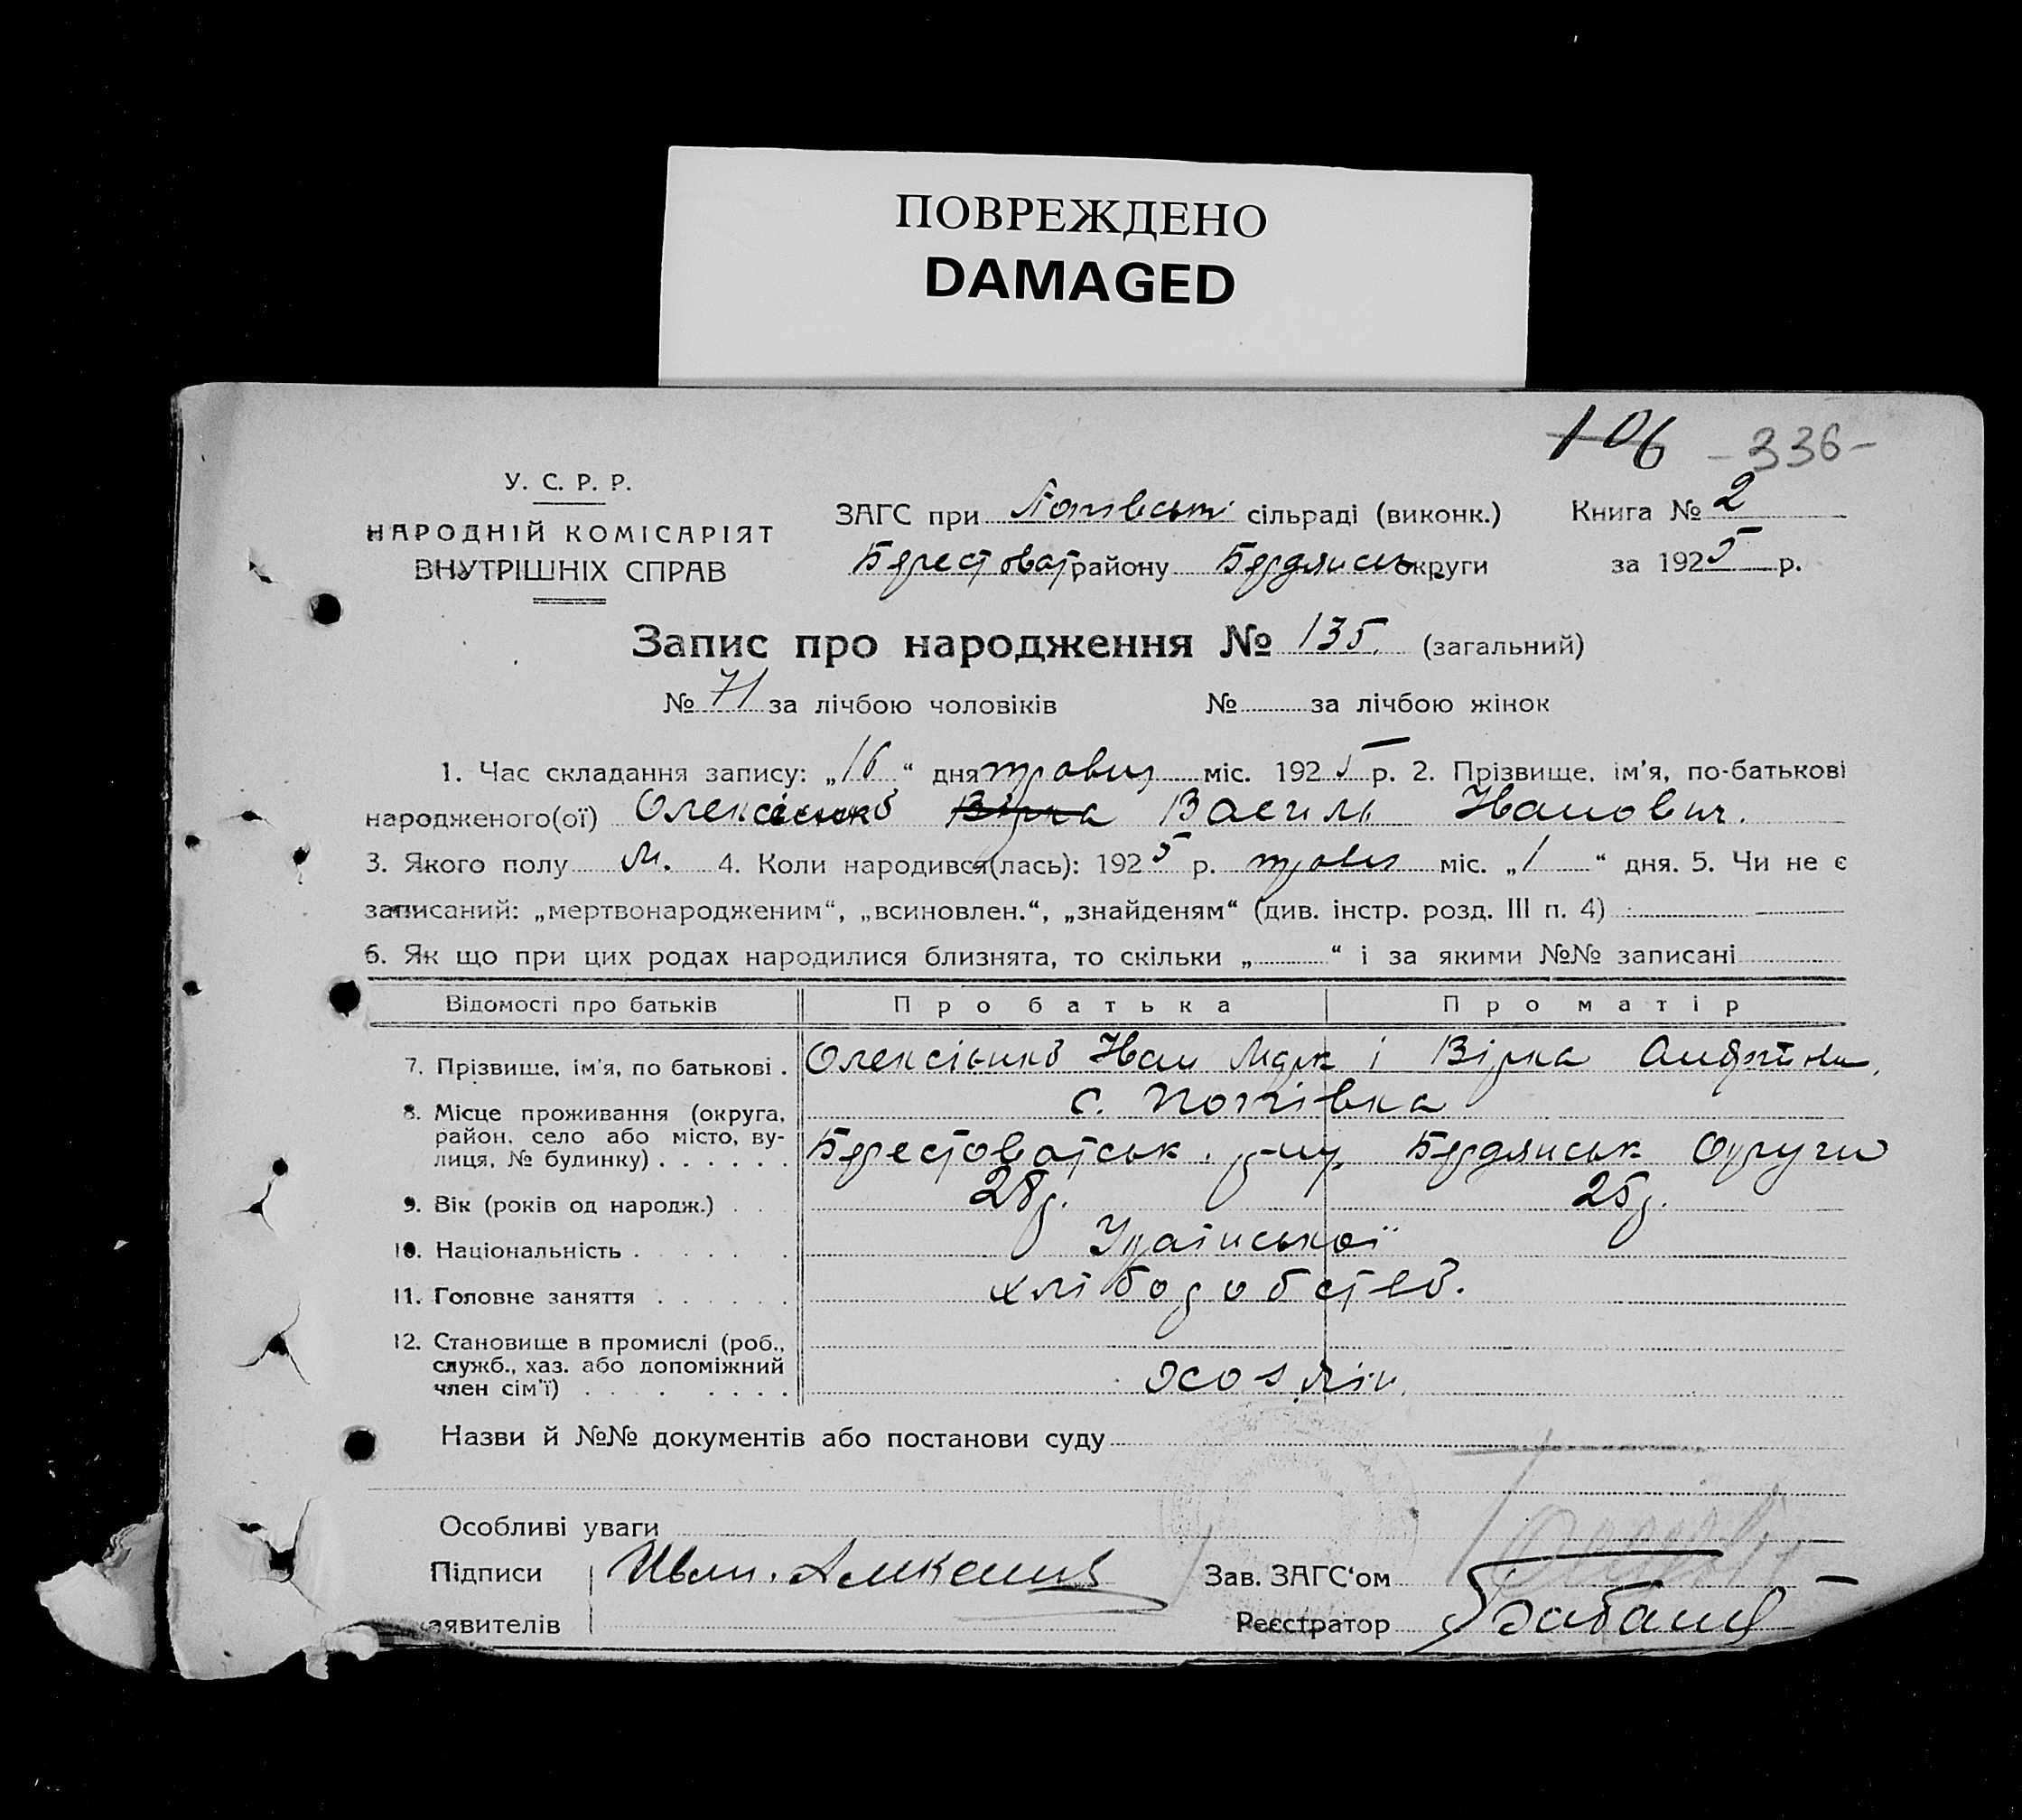 ПОВРЕЖДЕНО
DAMAGED
106 -336-
У. С. Р. Р.
НАРОДНІЙ КОМІСАРІЯТ
ВНУТРІШНІХ СПРАВ
ЗАГС при сільраді (виконк.) Книга № 2
Берестоват. району Бердянськ округи за 1925 р.
Запис про народження № 135. (загальний)
№ 71 за лічбою чоловіків № за лічбою жінок
1. Час складання запису: „16“ дня травня міс. 1925 р. 2. Прізвище, ім'я, по-батькові
народженого(ої) Олексієнко Вірка Василь Иванович.
3. Якого полу м. 4. Коли народився(лась): 1925 р. травня міс. „1“ дня. 5. Чи не є
записаний: „мертвонародженим“, „всиновлен.“, „знайденям“ (див. інстр. розд. III п. 4)
6. Як що при цих родах народилися близнята, то скільки „ “ і за якими №№ записані
Відомості про батьків Про батька Про матір
7. Прізвище, ім'я, по батькові . Олексієнко Иван Марк і Вірка
8. Місце проживання (округа, с. Попівка
район, село або місто, ву-
лиця, № будинку) . . . . . . Берестоватськ. р-ну Бердянськ Округи
9. Вік (років од народж.) . . 28р. 25р.
10. Національність . . . . . . Української
11. Головне заняття . . . . . . хліборобство.
12. Становище в промислі (роб.,
служб., хаз. або допоміжний
член сім'ї) . . . . . . . .
Назви й №№ документів або постанови суду
Особливі уваги
Підписи Иван.
Зав. ЗАГС'ом
аявителів Реєстратор